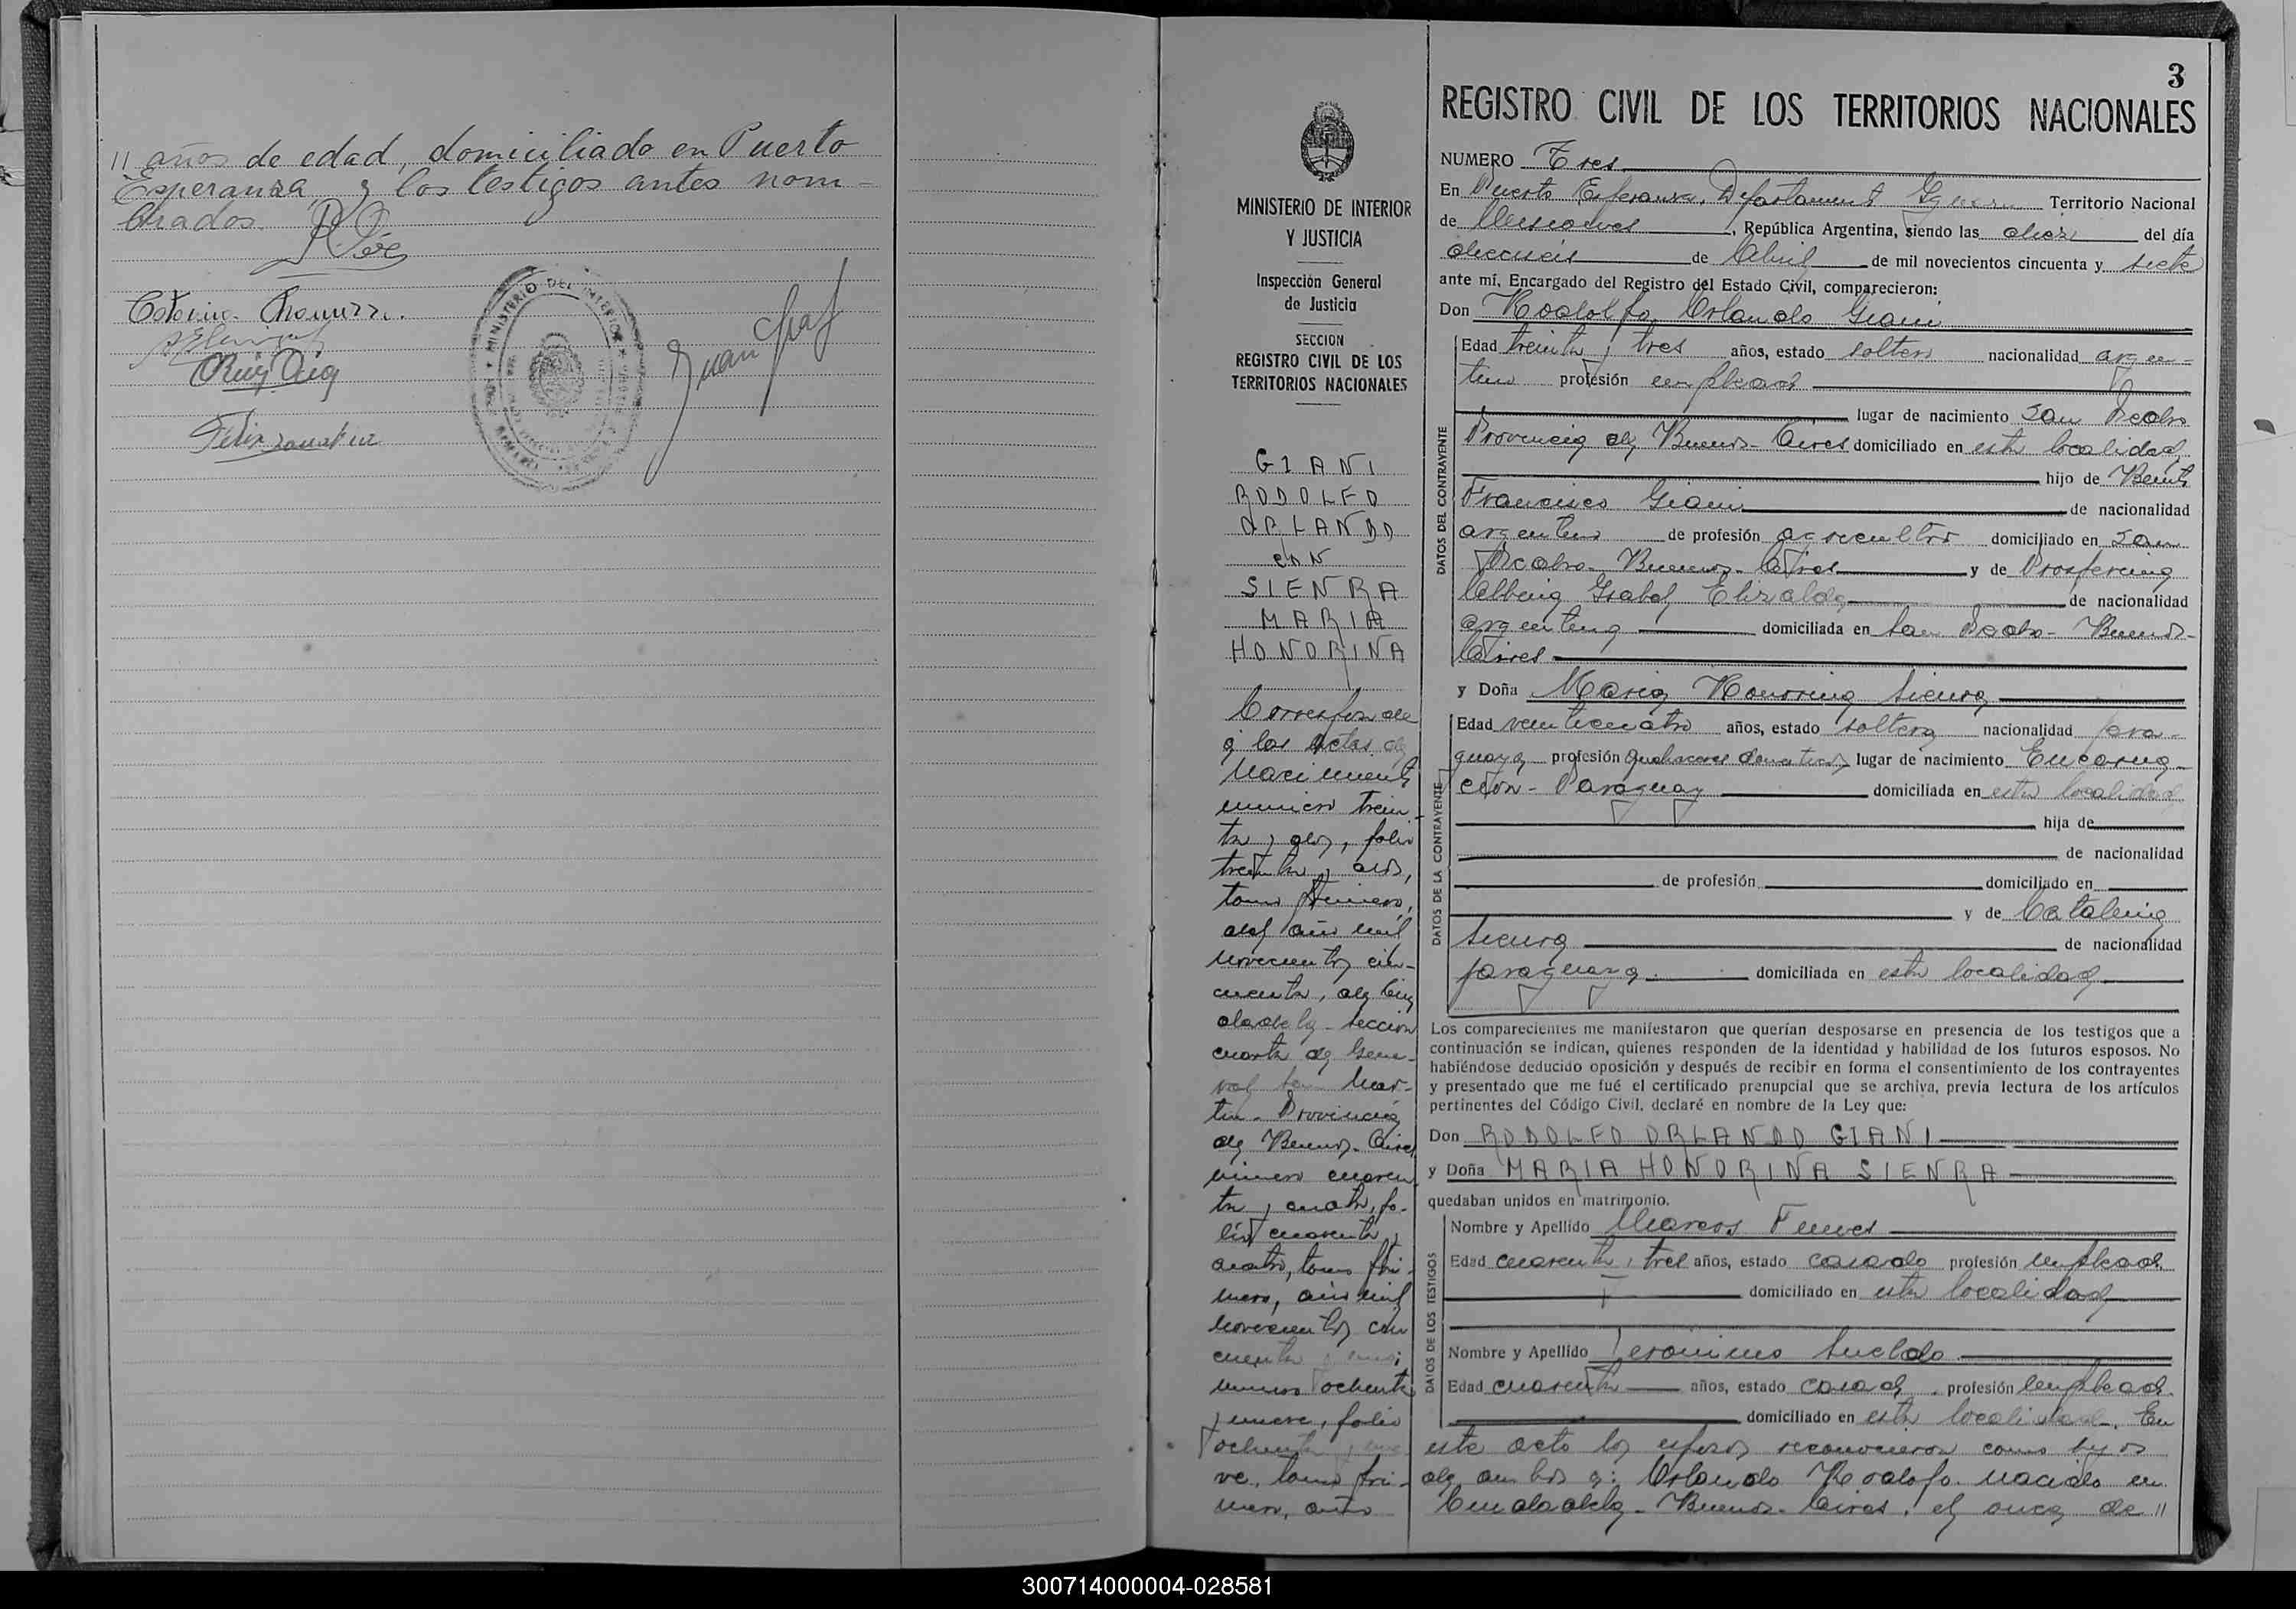 '' años de edad, domiciliado en Puerto
Esperanza, y los testigos antes nom-
brados.
MINISTERIO DEL INTERIOR
Juan
3
REGISTRO CIVIL DE LOS TERRITORIOS NACIONALES
MINISTERIO DE INTERIOR
Y JUSTICIA
Inspección General
de Justicia
SECCION
REGISTRO CIVIL DE LOS
TERRITORIOS NACIONALES
GIANI
RODOLFO
ORLANDO
CON
SIENRA
MARIA
HONORINA
Corresponde
a las actas de
Nacimiento
número trein-
ta y dos, folio
treinta y dos,
tomo primero,
del año mil
novecientos cin-
cuenta, de Ciu
dadela - Sección
cuarta de Gene-
ral San Mar-
tín - Provincia
de Buenos Aires
número cuaren
ta y cuatro, fo-
lio cuarenta y
cuatro, tomo pri-
mero, año mil
novecientos cin
cuenta
número ochenta
y nueve, folio
ochenta y nue-
ve, tomo pri-
mero, año
NUMERO Tres
En Puerto Esperanza, Departamento Iguazú Territorio Nacional
de Misiones, República Argentina, siendo las diez del día
dieciséis de Abril de mil novecientos cincuenta y siete
ante mí, Encargado del Registro del Estado Civil, comparecieron:
Don Rodolfo Orlando Giani
DATOS DEL CONTRAYENTE
Edad treinta y tres años, estado soltero nacionalidad argen-
tino profesión empleado
lugar de nacimiento San Pedro
Provincia de Buenos Aires domiciliado en esta localidad
hijo de Benito
Francisco Giani de nacionalidad
argentino de profesión agricultor domiciliado en San
Pedro - Buenos Aires y de Prosperina
Albina Isabel Elizalde de nacionalidad
argentina domiciliada en San Pedro - Buenos
Aires
y Doña Maria Honorina Sienra
DATOS DE LA CONTRAYENTE
Edad veinticuatro años, estado soltera nacionalidad para-
guaya profesión quehaceres domesticos lugar de nacimiento Encarna-
ción - Paraguay domiciliada en esta localidad
hija de
de nacionalidad
de profesión domiciliado en
y de Catalina
Sienra de nacionalidad
paraguaya. domiciliada en esta localidad
Los comparecientes me manifestaron que querían desposarse en presencia de los testigos que a
continuación se indican, quienes responden de la identidad y habilidad de los futuros esposos. No
habiéndose deducido oposición y después de recibir en forma el consentimiento de los contrayentes
y presentado que me fué el certificado prenupcial que se archiva, previa lectura de los artículos
pertinentes del Código Civil, declaré en nombre de la Ley que:
Don RODOLFO ORLANDO GIANI
y Doña MARIA HONORINA SIENRA
quedaban unidos en matrimonio.
DATOS DE LOS TESTIGOS
Nombre y Apellido Marcos Funes
Edad cuarenta y tres años, estado casado profesión empleado
domiciliado en esta localidad
Nombre y Apellido Jeronimo Sueldo
Edad cuarenta años, estado casado, profesión empleado.
domiciliado en esta localidad. En
este acto los esposos reconocieron como hijos
de ambos a: Orlando Rodolfo. nacido en
Ciudadela - Buenos Aires, el once de ''
300714000004-028581